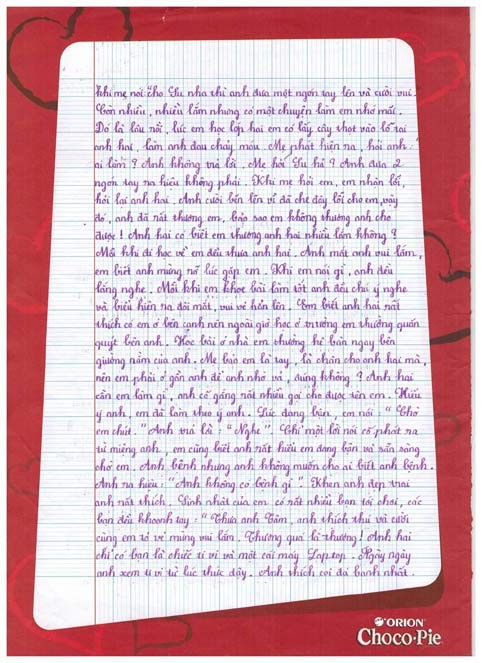 khi mẹ nói cho Su nha thì anh đưa một ngón tay lên và cười vui.
Còn nhiều, nhiều lắm nhưng có một chuyện làm em nhớ mãi.
Đó là lâu rồi, lúc em học lớp hai em có lấy cây thọt vào lỗ tai
anh hai, làm anh đau chảy máu. Mẹ phát hiện ra, hỏi anh
ai làm? Anh không trả lời. Mẹ hỏi Su hả? Anh đưa 2
ngón tay ra hiệu không phải. Khi mẹ hỏi em, em nhận lỗi,
hỏi lại anh hai. Anh cười bẽn lẽn vì đã che đậy lỗi cho em, vậy
đó, anh đã rất thương em, bảo sao em không thương anh cho
được! Anh hai có biết em thương anh hai nhiều lắm không?
Mỗi khi đi học về em đều thưa anh hai. Ánh mắt anh vui lắm,
em biết anh mừng rỡ lúc gặp em. Khi em nói gì, anh đều
lắng nghe. Mỗi khi em khoe bài làm tốt anh đều chú ý nghe
và biểu hiện ra đôi mắt, vui vẻ hẳn lên. Em biết anh hai rất
thích có em ở bên cạnh nên ngoài giờ học ở trường em thường quấn
quýt bên anh. Học bài ở nhà em thường kê bàn ngay bên
giường nằm của anh. Mẹ bảo em là tay, là chân cho anh hai mà,
nên em phải ở gần anh để anh nhờ vả, đúng không? Anh hai
cần em làm gì, anh cố gắng rất nhiều gọi cho được tên em. Hiểu
ý anh, em đã làm theo ý anh. Lúc đang bận, em nói: "Chờ
em chút." Anh trả lời: "Nghe". Chỉ một lời nói cố phát ra
từ miệng anh, em cũng biết anh rất hiểu em đang bận và sẵn sàng
chờ em. Anh bệnh nhưng anh không muốn cho ai biết anh bệnh.
Anh ra hiệu: "Anh không có bệnh gì". Khen anh đẹp trai
anh rất thích. Sinh nhật của em có rất nhiều bạn tới chơi, các
bạn đều khoanh tay: "Thưa anh Tâm, anh thích thú và cười
cùng em tỏ vẻ mừng vui lắm. Thương quá là thương! Anh hai
chỉ có bạn là chiếc ti vi và một cái máy Laptop. Ngày ngày
anh xem ti vi từ lúc thức dậy. Anh thích coi đá banh nhất.
ORION
Choco•Pie